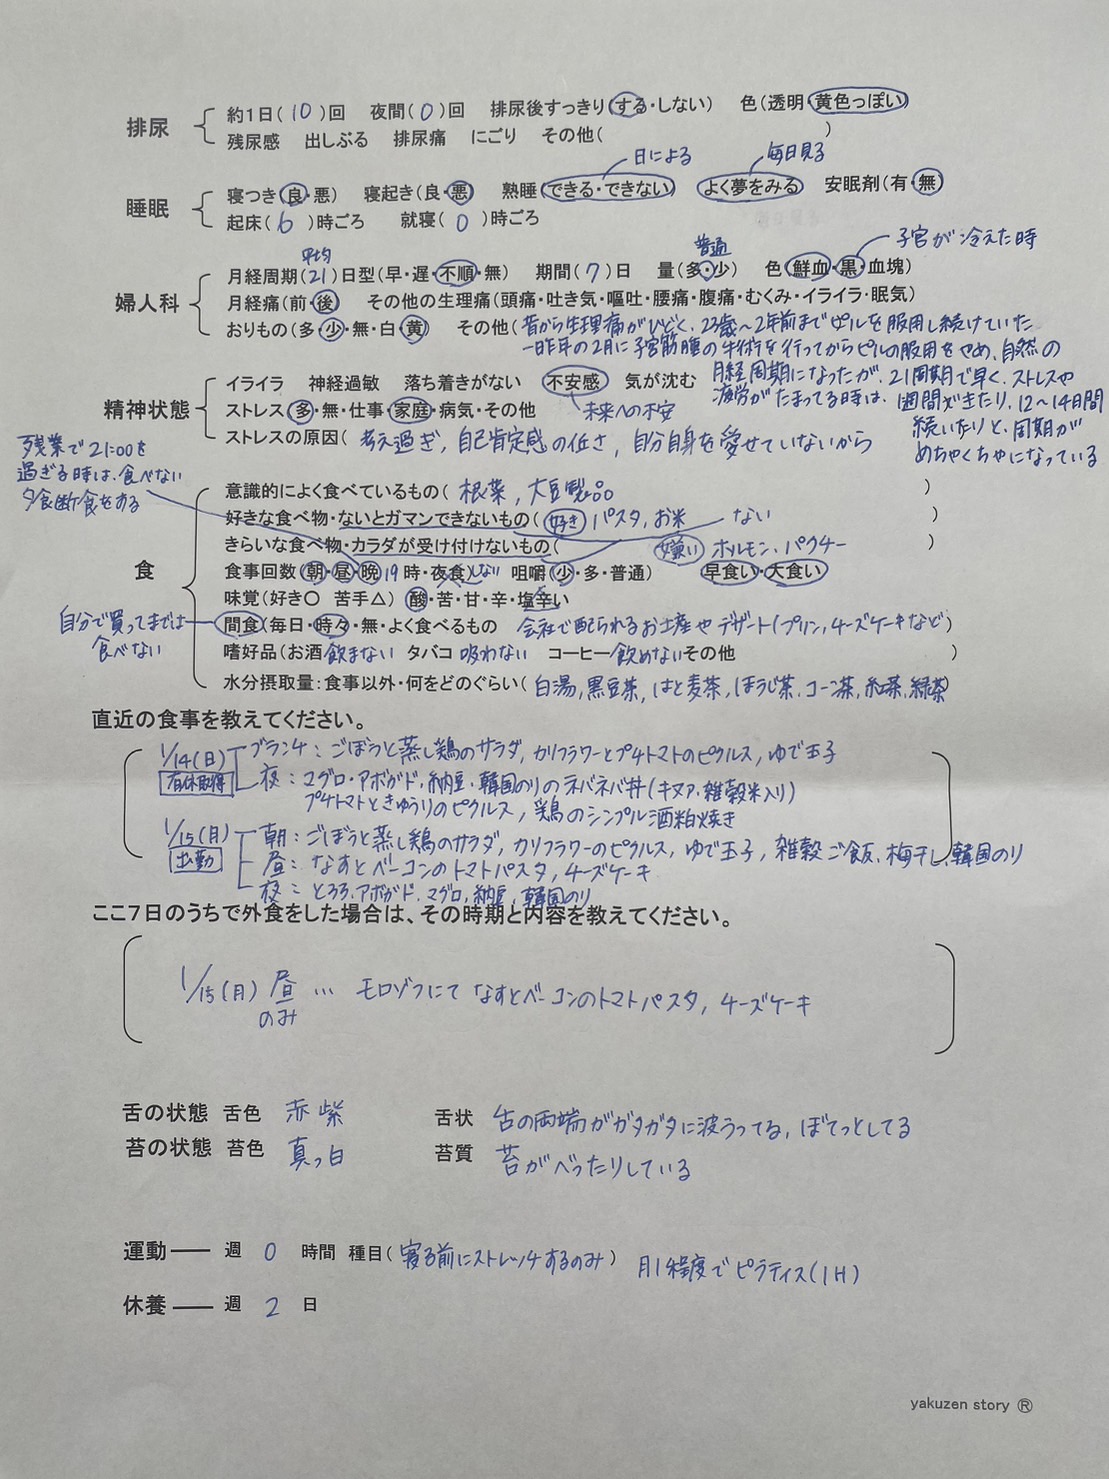 排尿 約1日(10)回 夜間(0)回 排尿後すっきり(する・しない) 色(透明・黄色っぽい)
残尿感 出しぶる 排尿痛 にごり その他( )
日による 毎日見る
睡眠 寝つき(良・悪) 寝起き(良・悪) 熟睡(できる・できない) よく夢をみる 安眠剤(有・無)
起床(6)時ごろ 就寝(0)時ごろ
平均 普通 子宮が冷えた時
婦人科 月経周期(21)日型(早・遅・不順・無) 期間(7)日 量(多・少) 色(鮮血・黒・血塊)
月経痛(前・後) その他の生理痛(頭痛・吐き気・嘔吐・腰痛・腹痛・むくみ・イライラ・眠気)
おりもの(多・少・無・白・黄) その他(昔から生理痛がひどく、23歳〜2年前までピルを服用し続けていた
一昨年の2月に子宮筋腫の手術を行ってからピルの服用をやめ、自然の
月経周期になったが、21周期で早く、ストレスや
疲労がたまってる時は、1週間できたり、12〜14日間
続いたりと、周期が
めちゃくちゃになっている
精神状態 イライラ 神経過敏 落ち着きがない 不安感 気が沈む
ストレス(多・無・仕事・家庭・病気・その他 未来への不安
ストレスの原因(考え過ぎ, 自己肯定感の低さ, 自分自身を愛せていないから
残業で21:00を
過ぎる時は、食べない
夕食断食をする
食 意識的によく食べているもの(根菜, 大豆製品 )
好きな食べ物・ないとガマンできないもの(好き パスタ, お米 ない )
きらいな食べ物・カラダが受け付けないもの( 嫌い ホルモン、パクチー )
食事回数(朝・昼・晩19時・夜食)しない 咀嚼(少・多・普通) 早食い・大食い
味覚(好き○ 苦手△) 酸・苦・甘・辛・塩辛い
自分で買ってまでは
食べない
間食(毎日・時々・無・よく食べるもの 会社で配られるお土産やデザート(プリン, チーズケーキなど)
嗜好品(お酒 飲まない タバコ 吸わない コーヒー 飲めない その他 )
水分摂取量:食事以外・何をどのぐらい(白湯, 黒豆茶, はと麦茶, ほうじ茶, コーン茶, 紅茶, 緑茶)
直近の食事を教えてください。
1/14(日) ブランチ:ごぼうと蒸し鶏のサラダ, カリフラワーとプチトマトのピクルス, ゆで玉子
有休取得 夜:マグロ・アボガド・納豆・韓国のりのネバネバ丼(キヌア・雑穀米入り)
プチトマトときゅうりのピクルス, 鶏のシンプル酒粕焼き
1/15(月) 朝:ごぼうと蒸し鶏のサラダ, カリフラワーのピクルス, ゆで玉子, 雑穀ご飯、梅干し、韓国のり
出勤 昼:なすとベーコンのトマトパスタ, チーズケーキ
夜:とろろ、アボガド、マグロ, 納豆, 韓国のり
ここ7日のうちで外食をした場合は、その時期と内容を教えてください。
1/15(月) 昼 … モロゾフにて なすとベーコンのトマトパスタ, チーズケーキ
のみ
舌の状態 舌色 赤紫 舌状 舌の両端がガタガタに波うってる, ぼてっとしてる
苔の状態 苔色 真っ白 苔質 苔がべったりしている
運動 ― 週 0 時間 種目(寝る前にストレッチするのみ) 月1程度でピラティス(1H)
休養 ― 週 2 日
yakuzen story Ⓡ